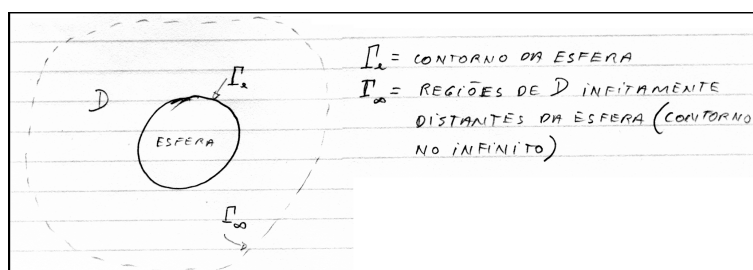 Γe
D
ESFERA
Γ∞
Γe = CONTORNO DA ESFERA
Γ∞ = REGIÕES DE D INFITAMENTE
DISTANTES DA ESFERA (CONTORNO
NO INFINITO)